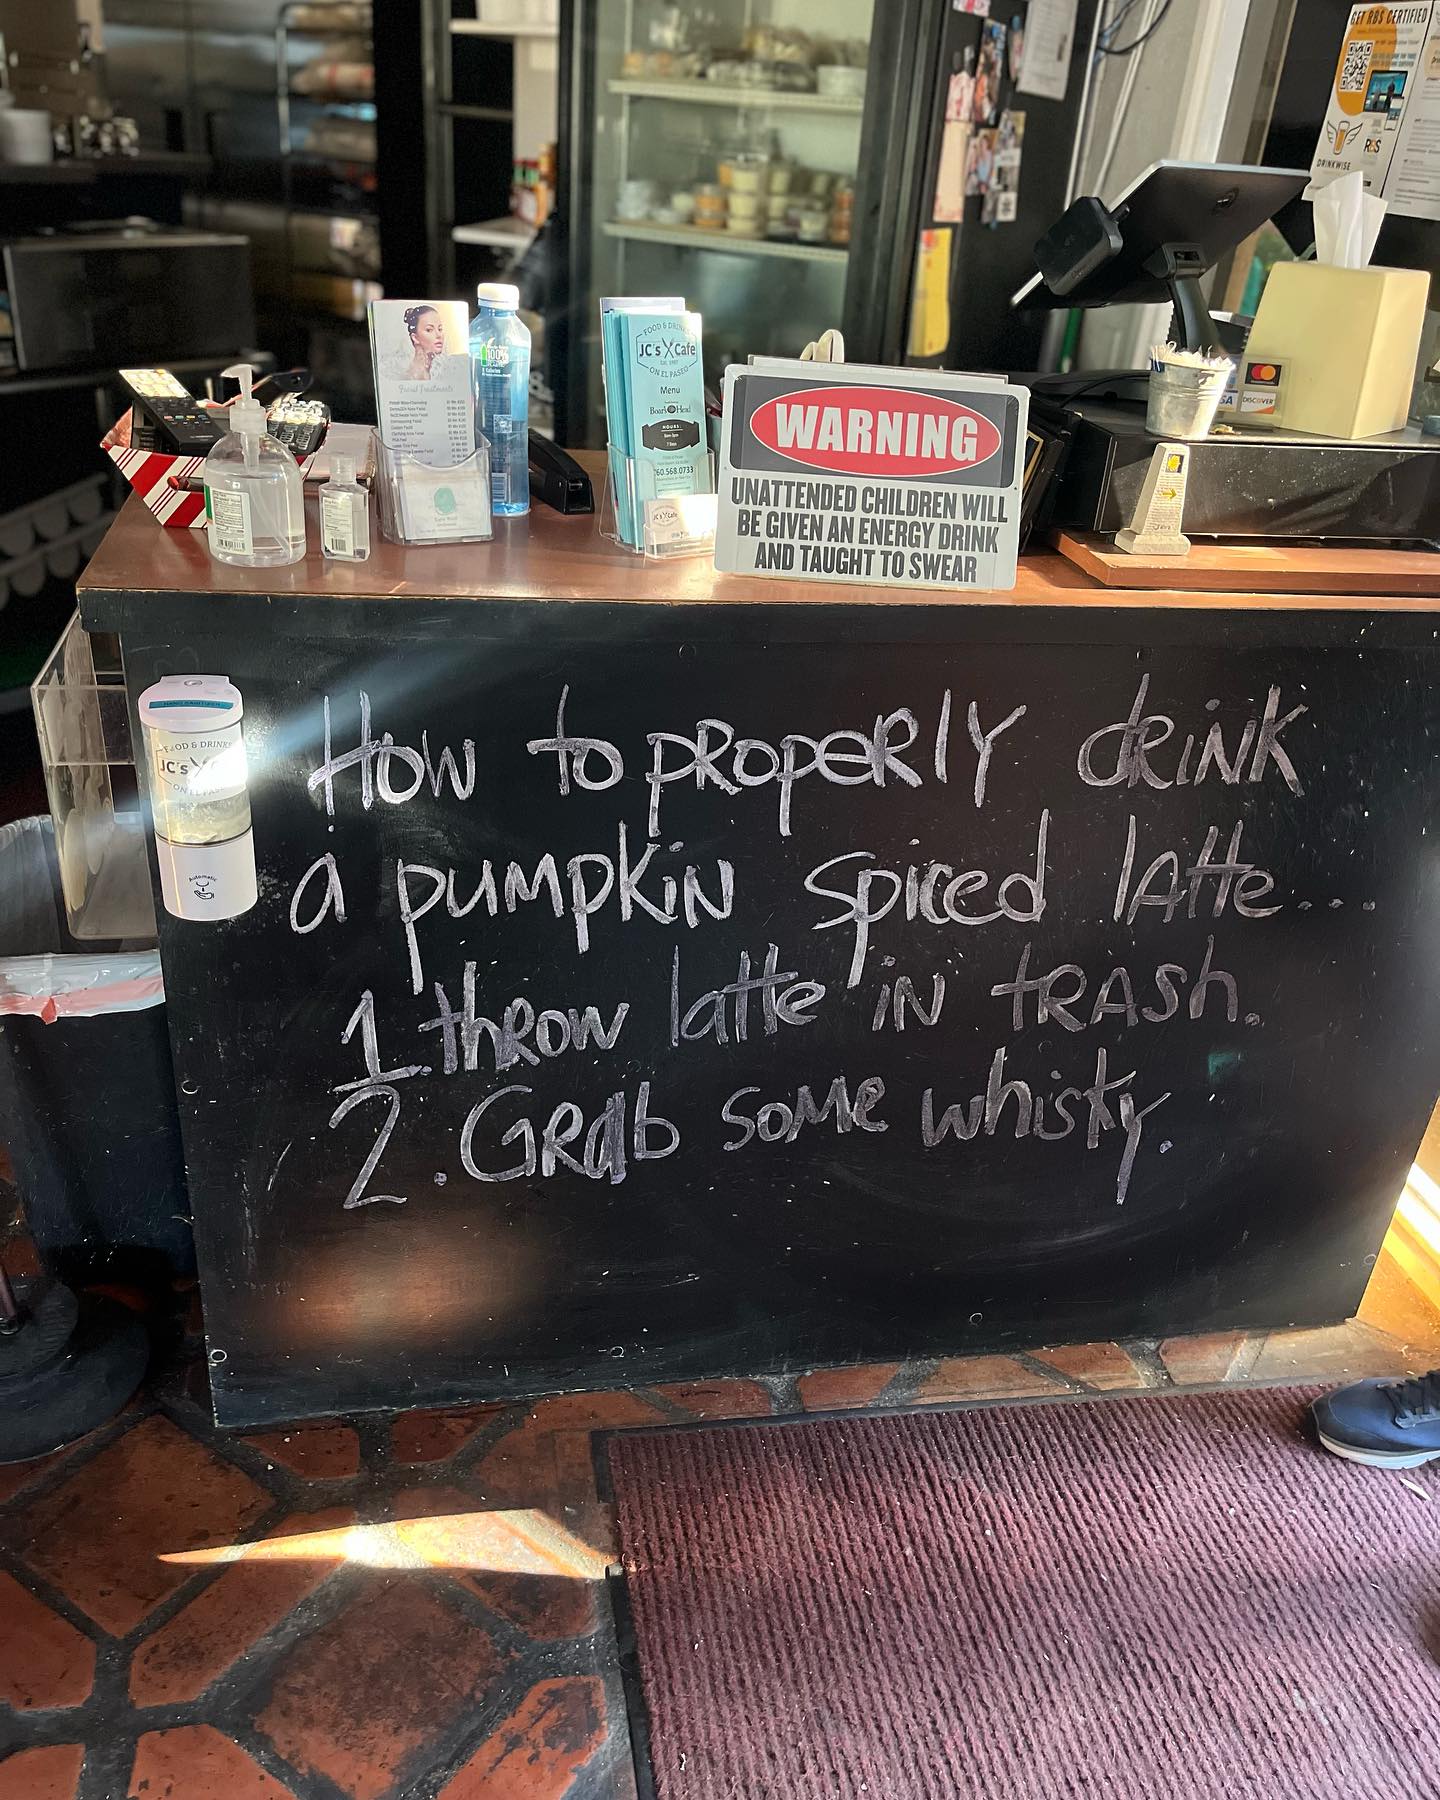 GET RBS CERTIFIED
DRINKWISE
RBS
FOOD & DRINKS
JC's Cafe
ON EL PASEO
Menu
Boar's Head
HOURS:
760.568.0733
Facial Treatments
100%
JC's Cafe
VISA
DISCOVER
WARNING
UNATTENDED CHILDREN WILL
BE GIVEN AN ENERGY DRINK
AND TAUGHT TO SWEAR
HAND SANITIZER
FOOD & DRINKS
JC's
ON EL PASEO
Automatic
How to properly drink
a pumpkin spiced latte...
1. throw latte in trash.
2. Grab some whisky.